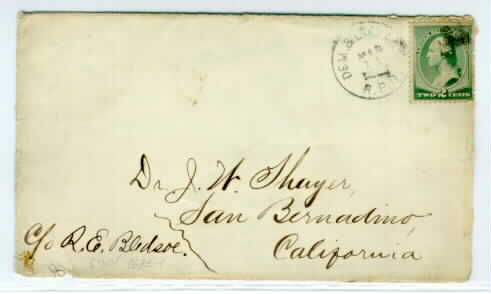 DEM. &
MAR
R.P.O.
TWO CENTS
Dr J. W. Thayer,
San Bernadino,
California
C/o R. E. Bledsoe.